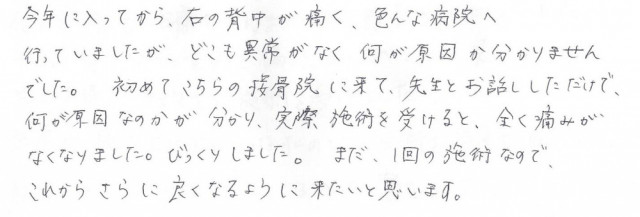 今年に入ってから、右の背中が痛く、色んな病院へ
行っていましたが、どこも異常がなく何が原因か分かりません
でした。初めてこちらの接骨院に来て、先生とお話ししただけで、
何が原因なのかが分かり、実際施術を受けると、全く痛みが
なくなりました。びっくりしました。まだ、1回の施術なので、
これからさらに良くなるように来たいと思います。